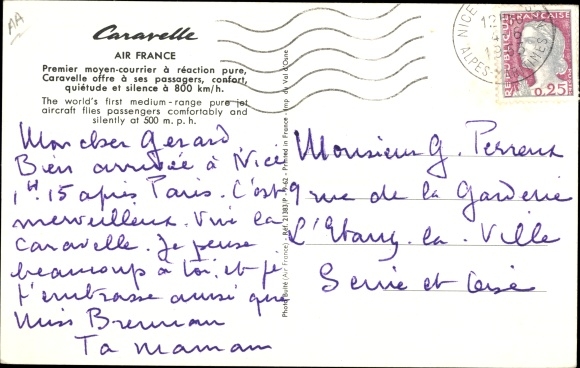 AA
Caravelle
AIR FRANCE
Premier moyen-courrier à réaction pure,
Caravelle offre à ses passagers, confort,
quiétude et silence à 800 km/h.
The world's first medium-range pure jet
aircraft flies passengers comfortably and
silently at 500 m.p.h.
Mon cher Gerard
Bien arrivée à Nice
1H.15 après Paris. C'est
merveilleux. Vive la
Caravelle. Je pense
beaucoup à toi, et je
t'embrasse ainsi que
Miss Brennan
Ta maman
Photo Buité (Air France) - Réf. 21383/P - 9-62 - Printed in France - Imp. du Val d'Osne
NICE
ALPES-MARITIMES
REPUBLIQUE FRANÇAISE
0,25
Monsieur G. Perreux
9 rue de la Garderie
L'Etang-la-Ville
Seine et Oise